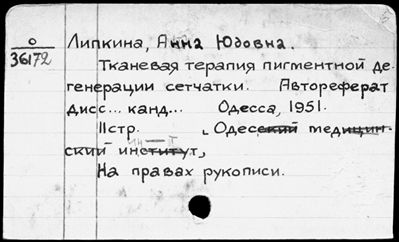 О
36172
Липкина, Анна Юдовна.
Тканевая терапия пигментной де-
генерации сетчатки. Автореферат
дисс... канд... Одесса, 1951.
11стр. (Одесский медицин-
ин—т
ский институт,
На правах рукописи.